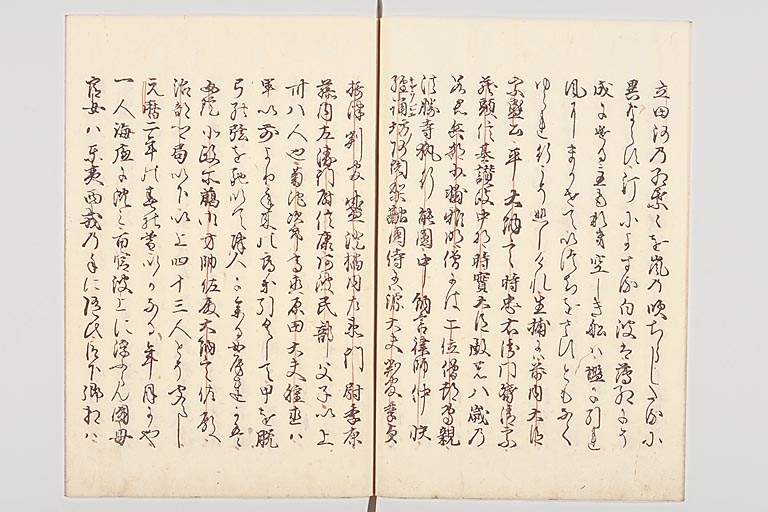 立田河乃紅葉〻を嵐乃吹ちらしたるに
異ならす汀によする白波も薄紅にそ
成にける主もなき空しき船ハ塩に引れ
風にまかせていつちをさすともなく
ゆられ行こそ悲しけれ生捕にハ前内大臣
宗盛公平大納言時忠右衛門督清宗
蔵頭信基讃岐中将時實大臣殿の八歳乃
若君兵部少輔雅明僧にハ二位僧都専親
法勝寺執行能圓中納言律師仲快
経誦坊阿闍梨融圓侍にハ源大夫判官季貞
摂津判官盛澄橘内左衛門尉季康
藤内左衛門尉信康阿波民部父子以上
卅八人也菊池次郎高直原田大夫種直ハ
軍以前より年来の郎等引具して甲を脱
弓の弦を弛して降人に参る女房達にハ
女院北政所廊御方帥佐殿大納言佐殿
治部卿局以下以上四十三人とそ聞えし
元暦二年の春の暮いかなる年月にや
一人海底に沈ミ百官波上に浮らん國母
官女ハ東夷西戎乃手に随ひ臣下卿相ハ